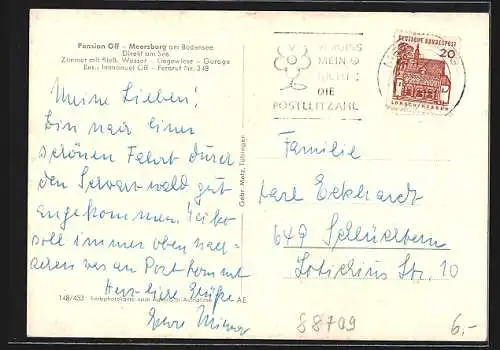 Pension Off – Meersburg am Bodensee
Direkt am See
Zimmer mit fließ. Wasser – Liegewiese – Garage
Bes.: Immanuel Off – Fernruf Nr. 348
Meine Lieben!
Bin nach einer
schönen Fahrt durch
den Schwarzwald gut
angekommen. Heiko
soll immer oben nach-
sehen was an Post kommt
Herzliche Grüße
Eure
148/433 Farbphotokarte nach Agfacolor-Aufnahme AE
Gebr. Metz, Tübingen
VERGISS
MEIN
NICHT
DIE
POSTLEITZAHL
DEUTSCHE BUNDESPOST
20
LORSCH/HESSEN
Familie
Karl Eckhardt
649 Schlüchtern
Lotichius Str. 10
88709
6,-